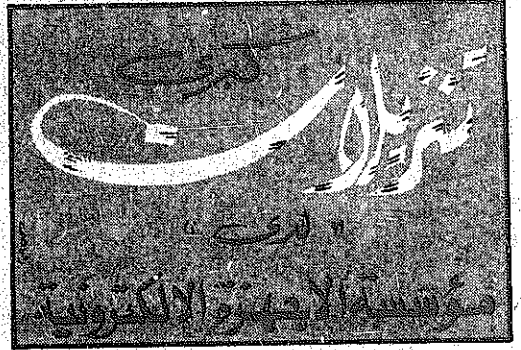 كبرى
تنزيلات
" لدى "
مؤسسة الأجهزة الإلكترونية